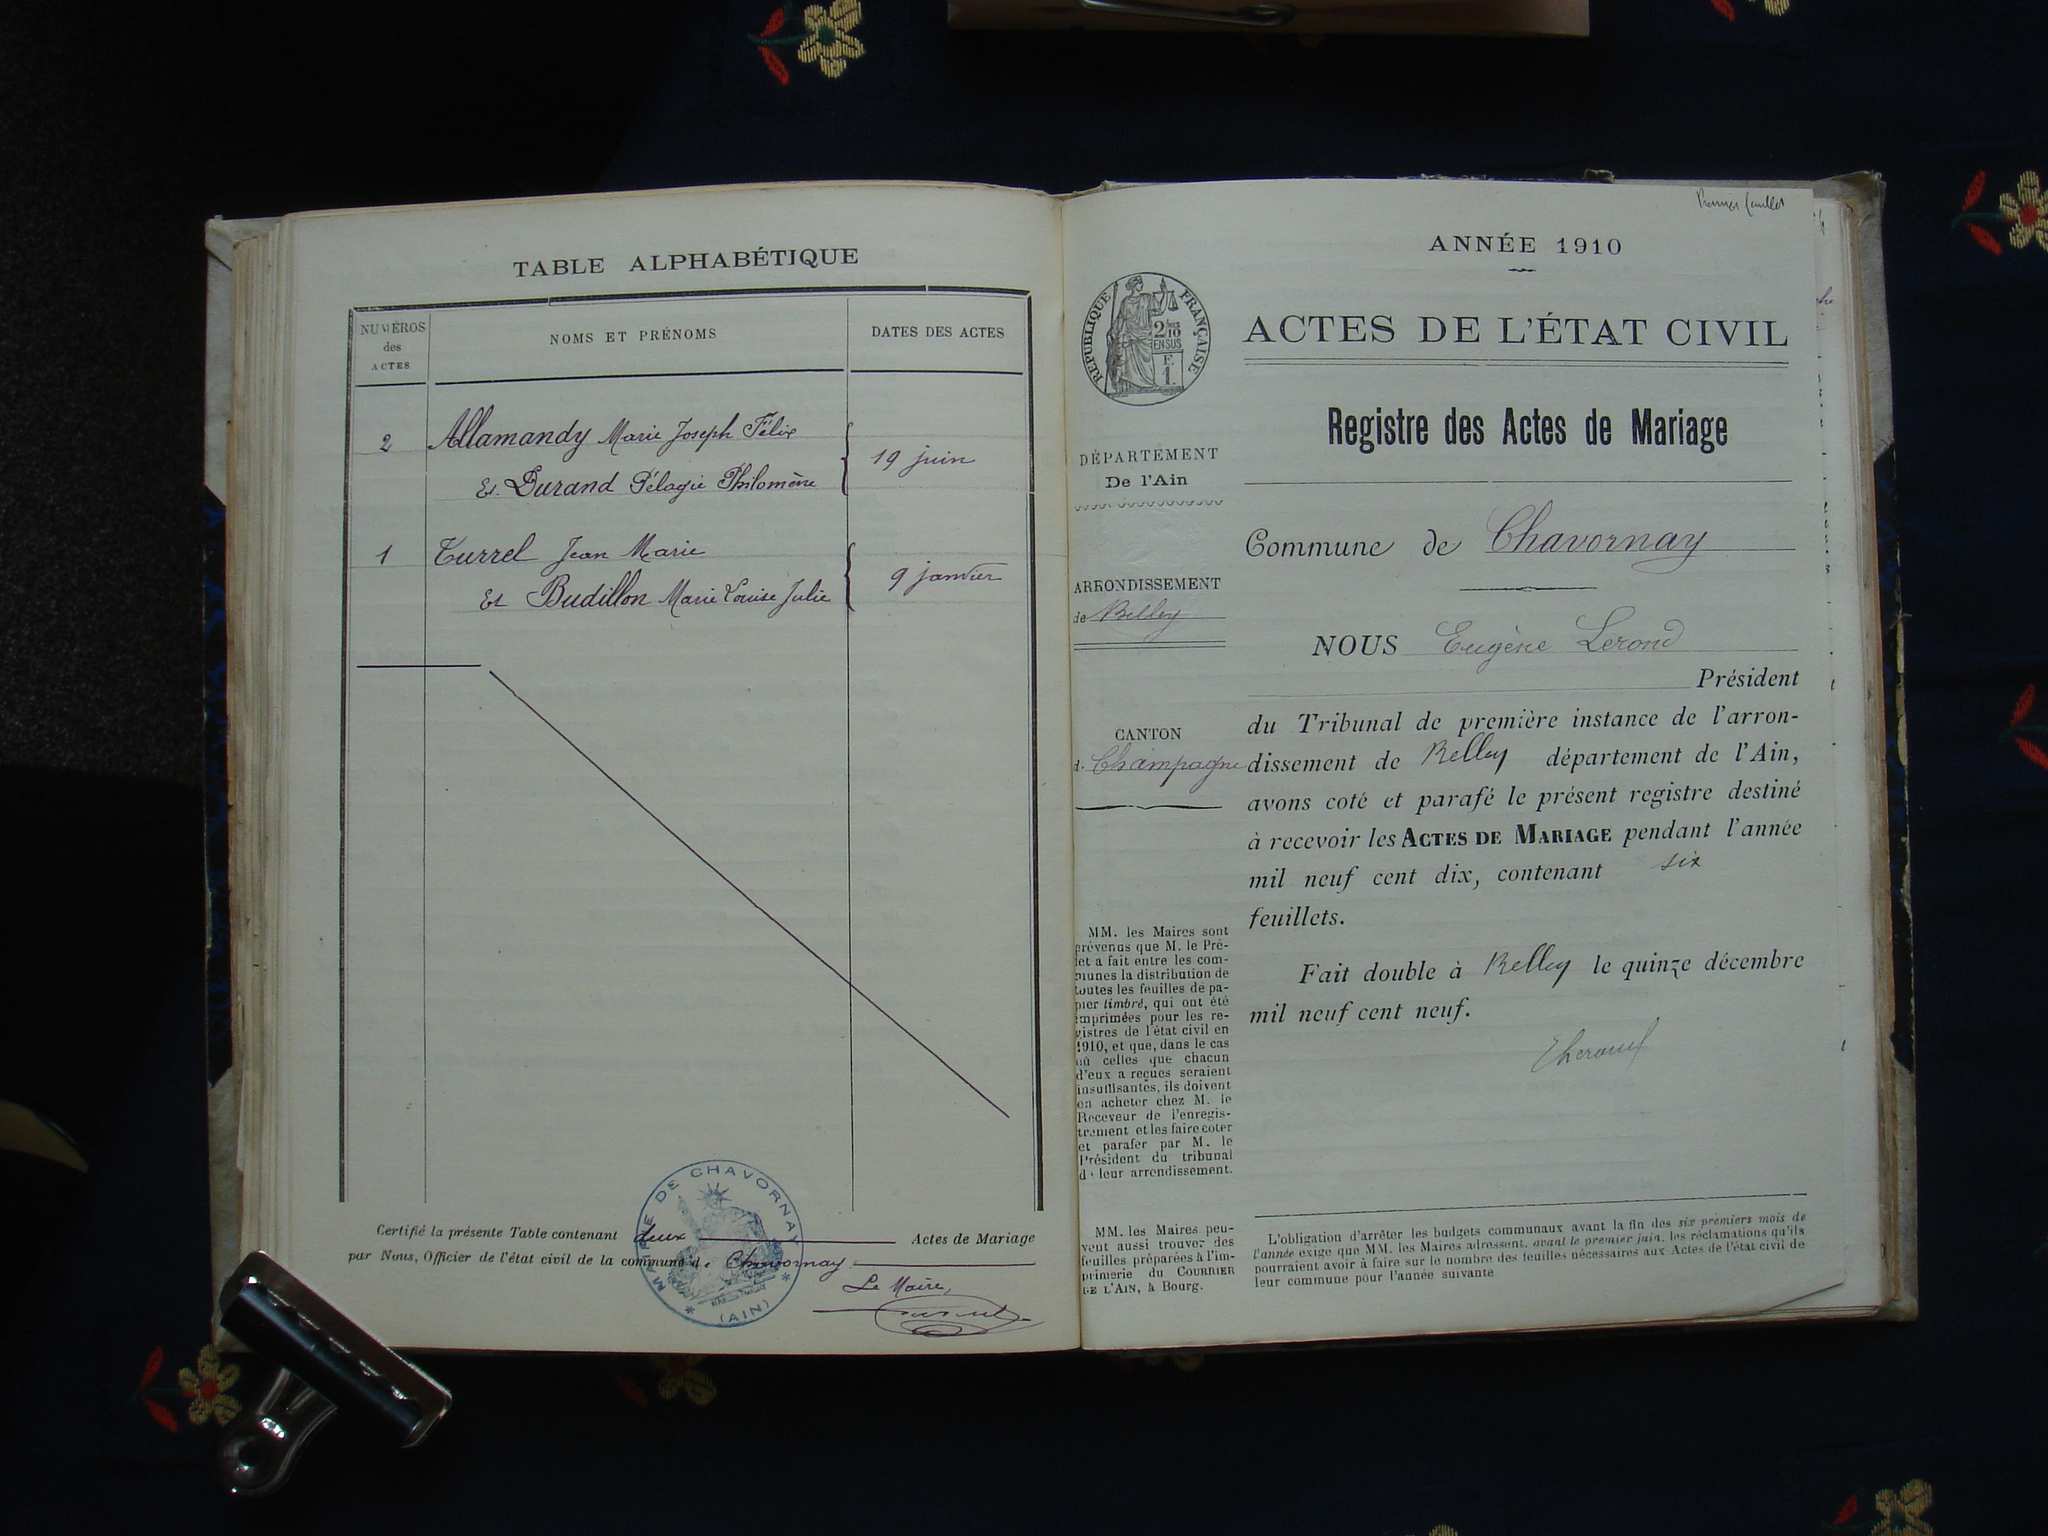 TABLE ALPHABÉTIQUE
NUMÉROS
des
ACTES
NOMS ET PRÉNOMS
DATES DES ACTES
2
Allamandy Marie Joseph Félix
Et Durand Pélagie Philomène
19 juin
1
Turrel Jean Marie
Et Budillon Marie Louise Julie
9 janvier
Certifié la présente Table contenant deux Actes de Mariage
par Nous, Officier de l'état civil de la commune de Chavornay
Le Maire,
MAIRIE DE CHAVORNAY
(AIN)
Premier feuillet
ANNÉE 1910
RÉPUBLIQUE FRANÇAISE
2
10
EN SUS
F.
1.
ACTES DE L'ÉTAT CIVIL
Registre des Actes de Mariage
DÉPARTEMENT
De l'Ain
Commune de Chavornay
ARRONDISSEMENT
de Belley
NOUS Eugène Lerond
Président
CANTON
d. Champagne
du Tribunal de première instance de l'arron-
dissement de Belley département de l'Ain,
avons coté et parafé le présent registre destiné
à recevoir les ACTES DE MARIAGE pendant l'année
mil neuf cent dix, contenant six
feuillets.
Fait double à Belley le quinze décembre
mil neuf cent neuf.
MM. les Maires sont
prévenus que M. le Pré-
fet a fait entre les com-
munes la distribution de
toutes les feuilles de pa-
pier timbré, qui ont été
imprimées pour les re-
gistres de l'état civil en
1910, et que, dans le cas
où celles que chacun
d'eux a reçues seraient
insuffisantes, ils doivent
en acheter chez M. le
Receveur de l'enregis-
trement et les faire coter
et parafer par M. le
Président du tribunal
de leur arrondissement.
MM. les Maires peu-
vent aussi trouver des
feuilles préparées à l'im-
primerie du COURRIER
DE L'AIN, à Bourg.
L'obligation d'arrêter les budgets communaux avant la fin des six premiers mois de
l'année exige que MM. les Maires adressent, avant le premier juin, les réclamations qu'ils
pourraient avoir à faire sur le nombre des feuilles nécessaires aux Actes de l'état civil de
leur commune pour l'année suivante